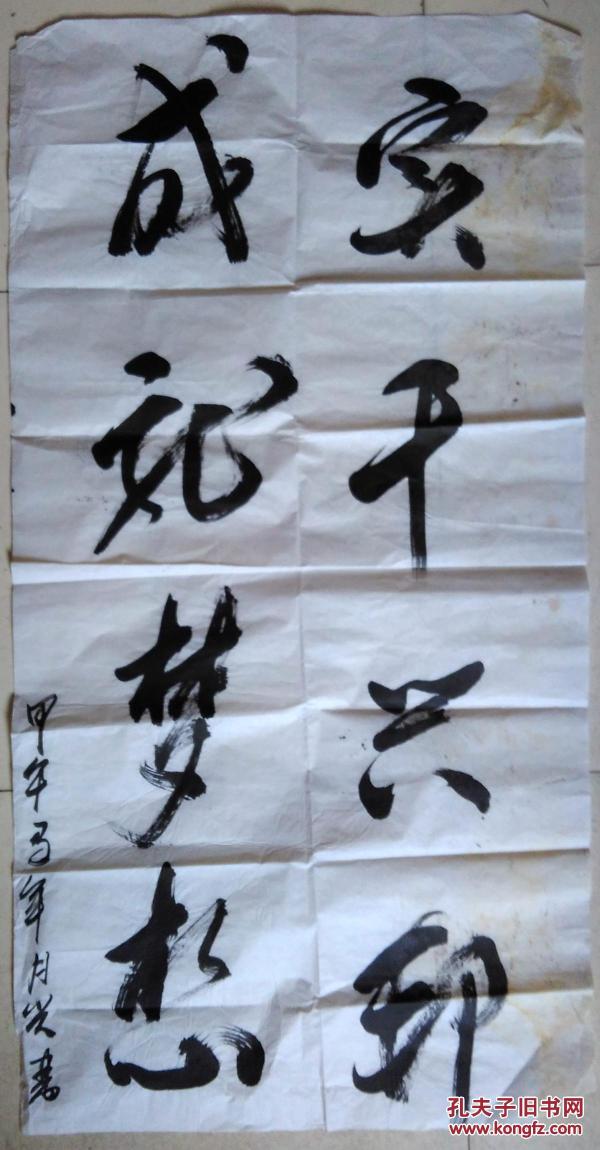 实干兴邦
成就梦想
甲午马年月书
孔夫子旧书网
www.kongfz.com